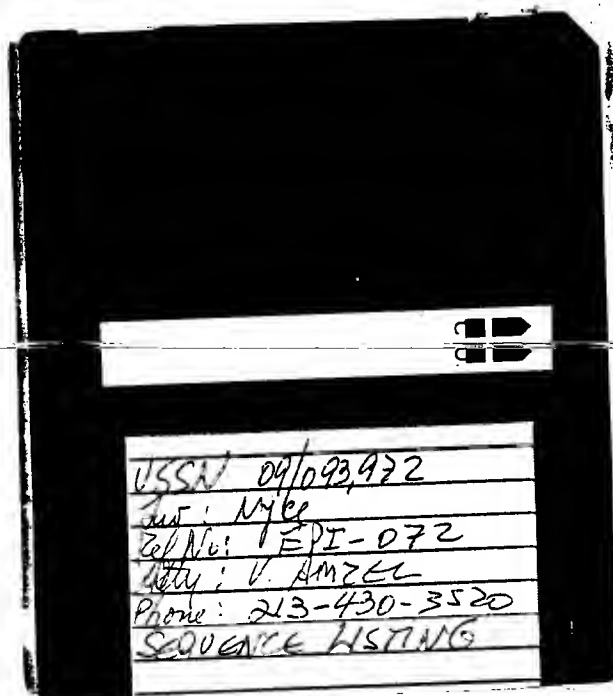 USSN 09/093,972
Inv: Nyce
Ref No: EPI-072
Atty: V. AMZEL
Phone: 213-430-3520
SEQUENCE LISTING